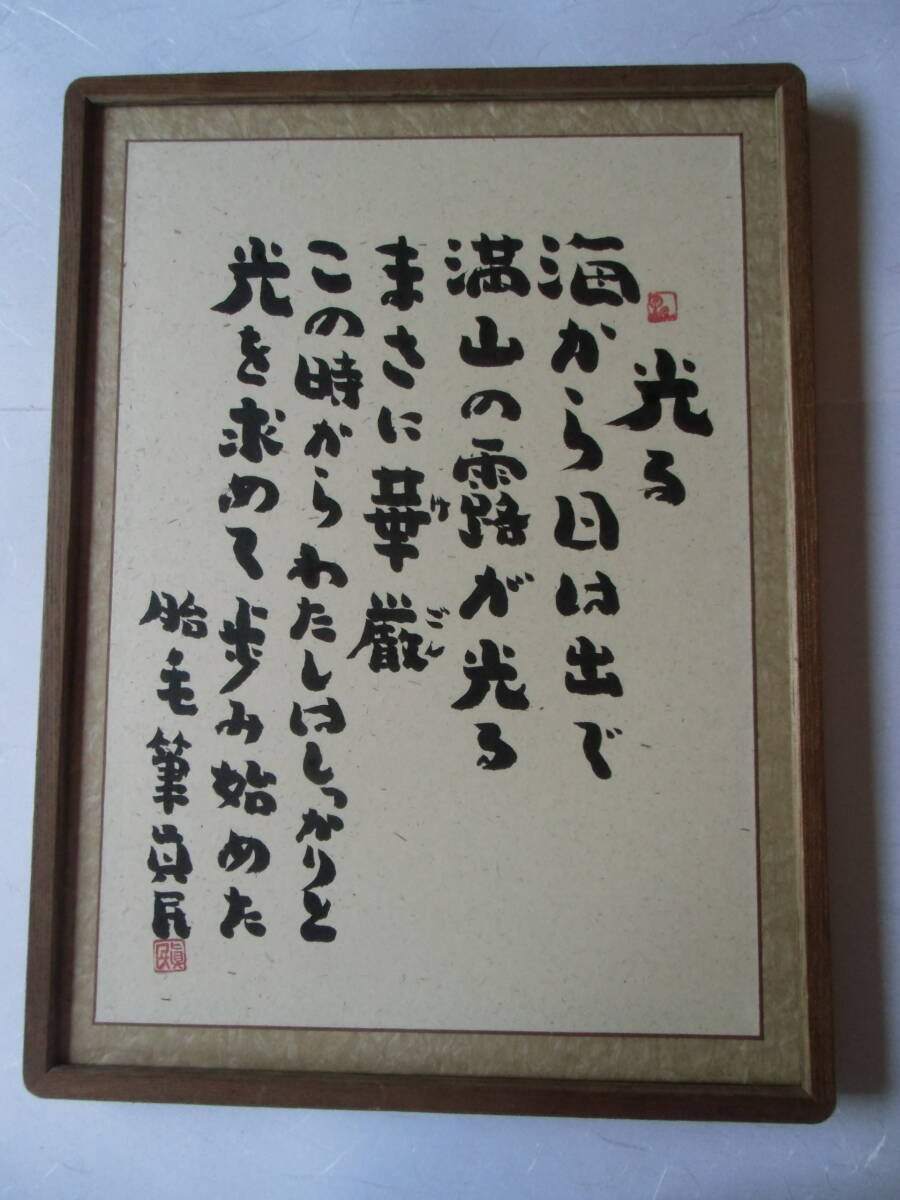 光る
海から日は出で
満山の露が光る
まさに華厳
けごん
この時からわたしはしっかりと
光を求めて歩み始めた
胎毛筆 真民